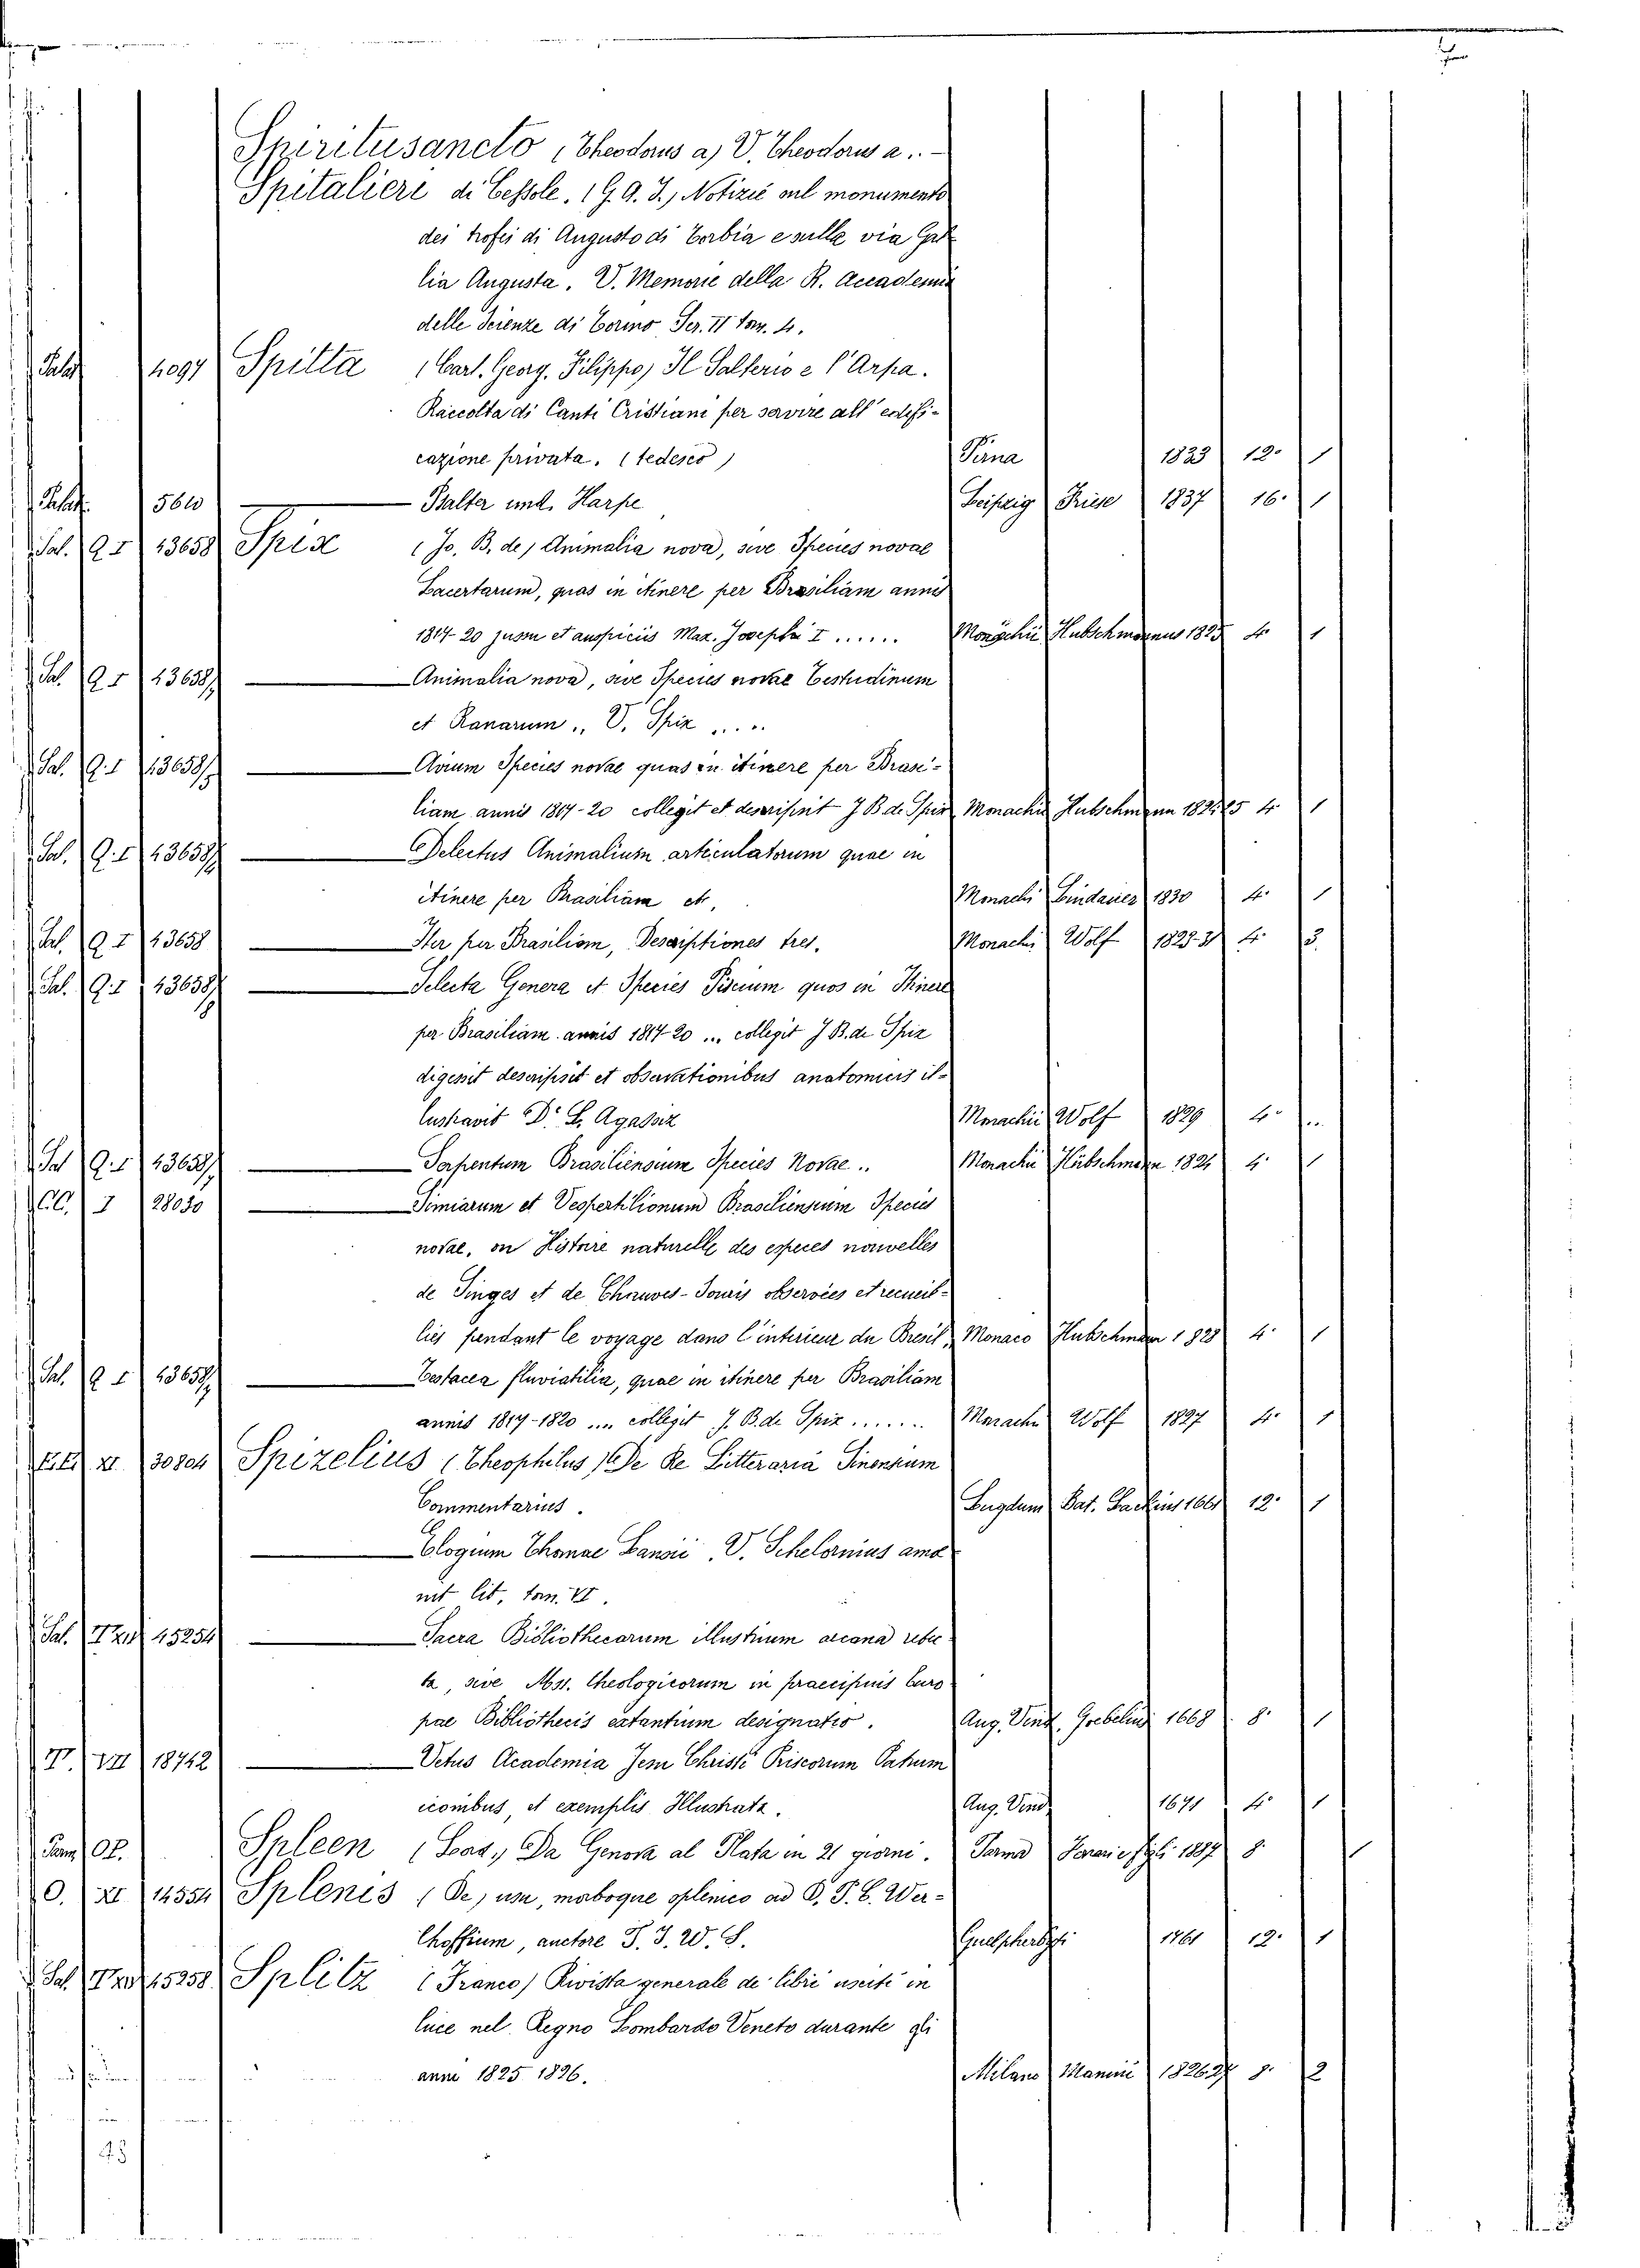 Spiritusancto (Theodorus a) V. Theodorus a..-
Spitalieri di Cessole. (G. A. I.) Notizie sul monumento
dei trofei di Augusto di Torbia e sulla via Gal
lia Augusta. V. Memorie della R. Accademia
delle Scienze di Torino Ser. II tom. 4.
Palat 4097 Spitta (Carl. Georg. Filippo) Il Salterio e l'Arpa.
Raccolta di Canti Cristiani per servire all' edifi-
cazione privata. (tedesco) Pirna 1823 12. 1
Palat. 5610 — Psalter und Harfe Leipzig Friese 1837 16. 1
Sal. Q. I 13658 Spix (Jo. B. de) Animalia nova, sive Species novae
Lacertarum, quas in itinere per Brasiliam annis
1817-20 jussu et auspiciis Max. Josephi I ...... Monachii Hubschmannus 1825 4 1
Sal. Q. I 13658 — Animalia nova, sive Species novae Testudinum
et Ranarum.. V. Spix ....
Sal. Q. I 13658 — Avium Species novae quas in itinere per Brasi-
liam annis 1817-20 collegit et descripsit J B de Spix Monachii Hubschmann 1824 25 4 1
Sal. Q. I 13658 — Delectus Animalium articulatorum quae in
itinere per Brasiliam etc. Monachi Lindauer 1830 4. 1
Sal. Q. I 13658 — Iter per Brasiliam, Descriptiones tres. Monachi Wolf 1823-31 4. 3.
Sal. Q. I 13658 — Selecta Genera et Species Piscium quos in Itinere
per Brasiliam annis 1817 20 ... collegit J B. de Spix
digessit descripsit et observationibus anatomicis il-
lustravit Dr. L. Agassiz Monachii Wolf 1829 4.
Sal Q. I 13658 — Serpentum Brasiliensium Species Novae.. Monachii Hübschmann 1824 4. 1
CC. I 28030 — Simiarum et Vespertilionum Brasiliensium Species
novae, ou Histoire naturelle des especes nouvelles
de Singes et de Chauves-Souris observées et recueil-
lies pendant le voyage dans l'interieur du Bresil, Monaco Hubschmann 1823 4. 1
Sal. Q I 13658 — Testacea fluviatilia, quae in itinere per Brasiliam
annis 1817-1820 .... collegit J. B. de Spix ...... Monachi Wolf 1827 4. 1
XI 30804 Spizelius (Theophilus) De Re Litteraria Sinensium
Commentarius. Lugdum Bat. Hackius 1661 12. 1
— Elogium Thomae Lansii. V. Schelornius amœ
nit lit, tom. VI.
Sal. 15254 — Sacra Bibliothecarum illustrium arcana retec
ta, sive Mss. Theologicorum in praecipuis Euro
pae Bibliothecis extantium designatio. Aug. Vind. Goebelius 1668 8. 1
VII 18742 — Vetus Academia Jesu Christi Priscorum Patrum
iconibus, et exemplis Illustrata. Aug. Vind 1671 4. 1
Parm OP. Spleen (Lord,) Da Genova al Plata in 21 giorni. Parma Ferrari e figli 1887 8.
O. XI 14554 Splenis (De) usu, morboque splenico ad D. P. G. Wer-
lhoffium, auctore P. J. W. S. Guelpherbyti 1761 12. 1
Sal. 15258 Splitz (Franco) Rivista generale de' libri usciti in
luce nel Regno Lombardo Veneto durante gli
anni 1825 1826. Milano Manini 1826.27 8. 2
43